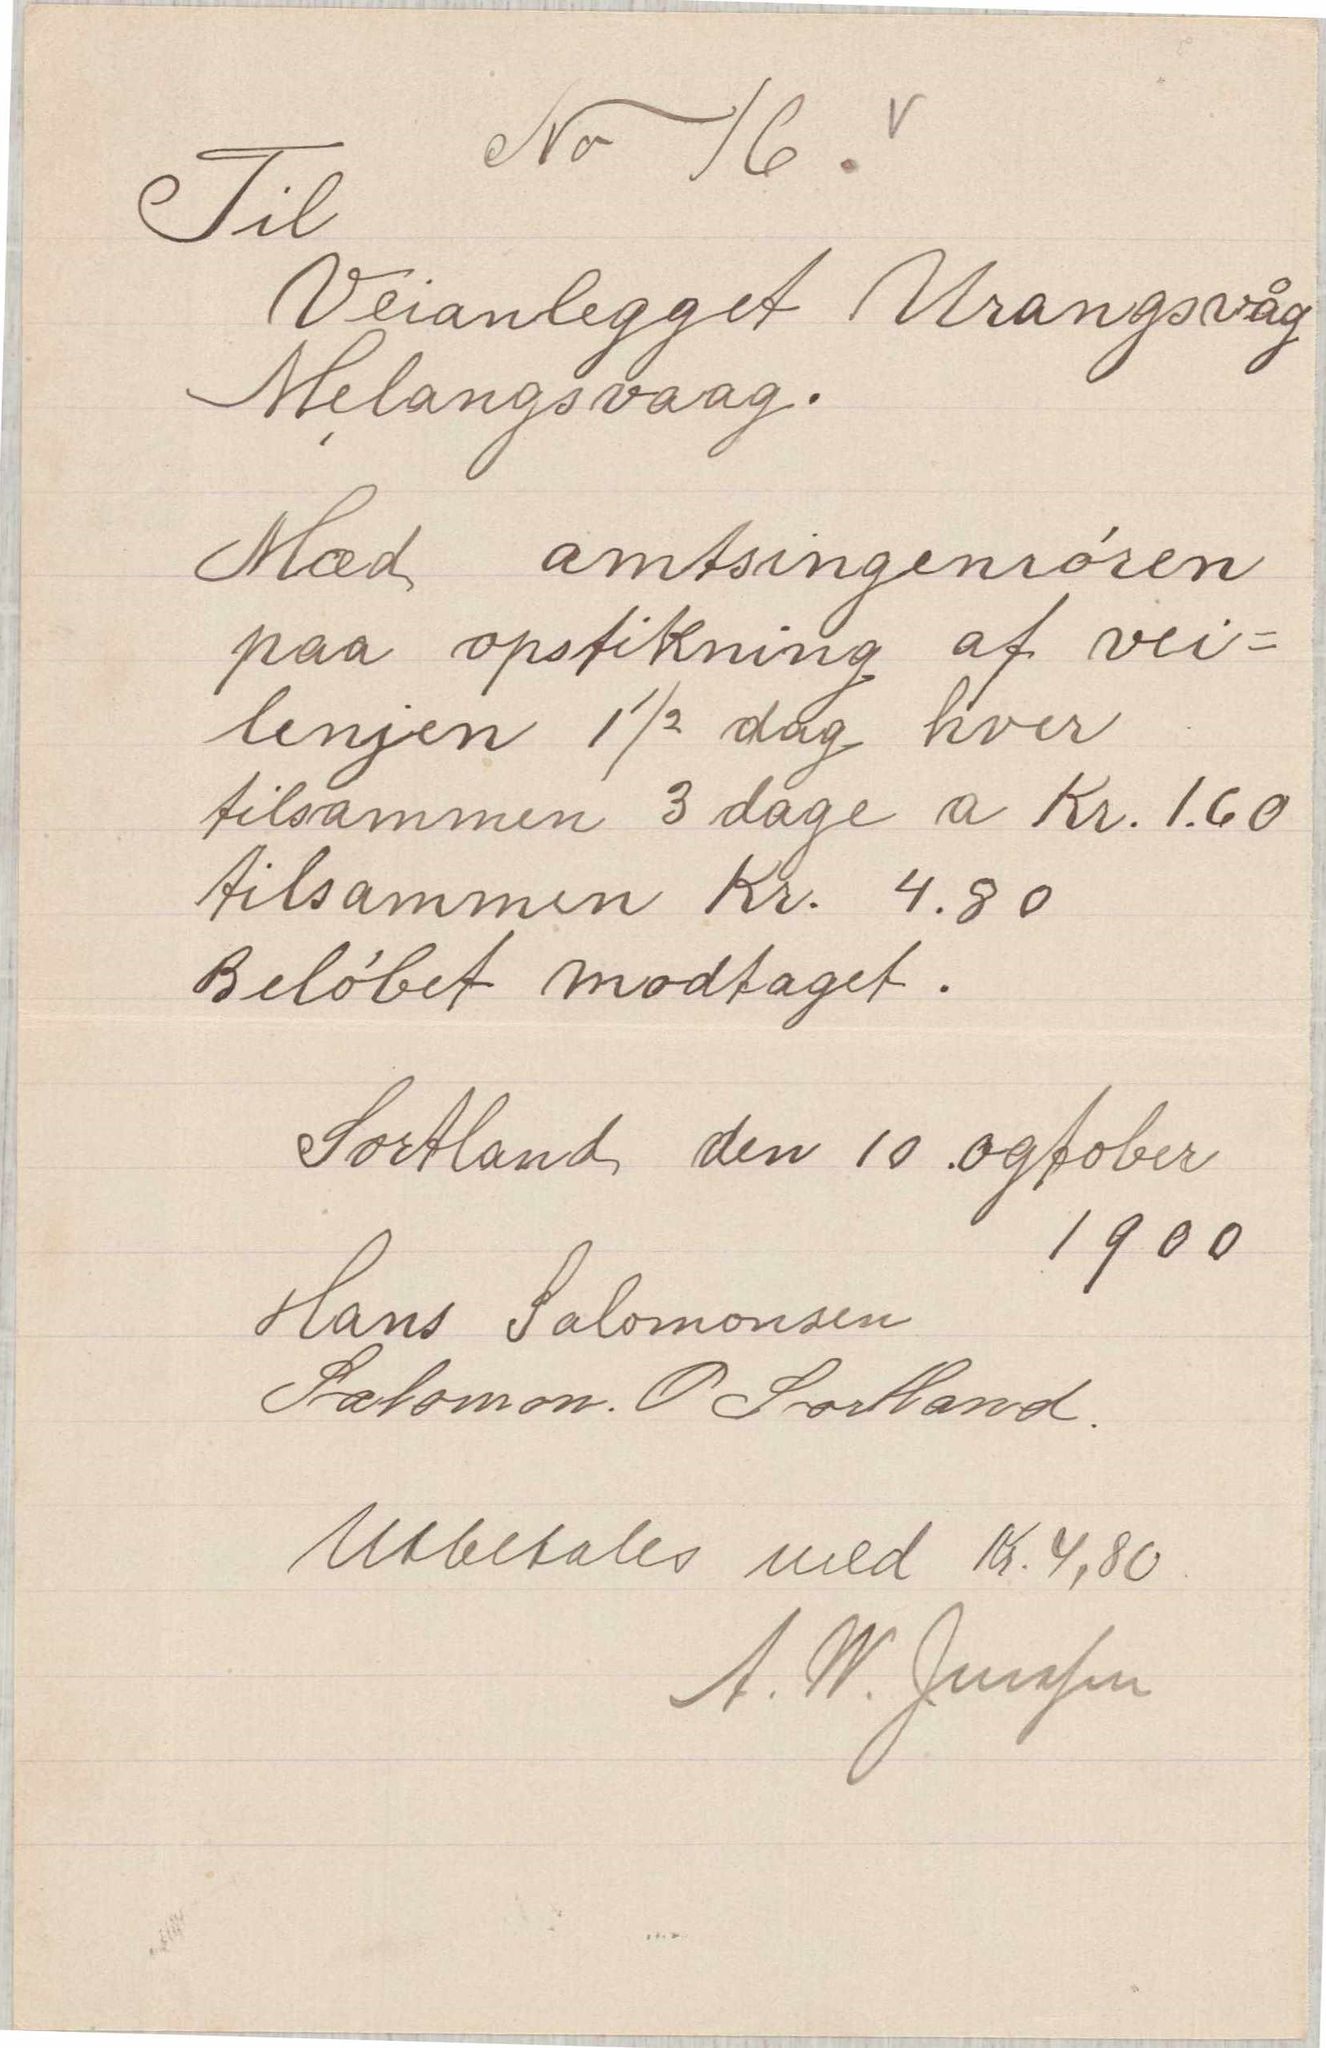 No 16. v
Til
Veianlegget Urangsvåg
Melangsvaag.
Mæd amtsingeniøren
paa opstikning af vei=
lenjen 1 1/2 dag hver
tilsammen 3 dage a Kr. 1.60
tilsammen Kr. 4.80
Beløbet modtaget.
Sortland den 10. ogtober
1900
Hans Salomonsen
Salomon. O Sortland.
Utbetales med Kr. 4,80
A. W.